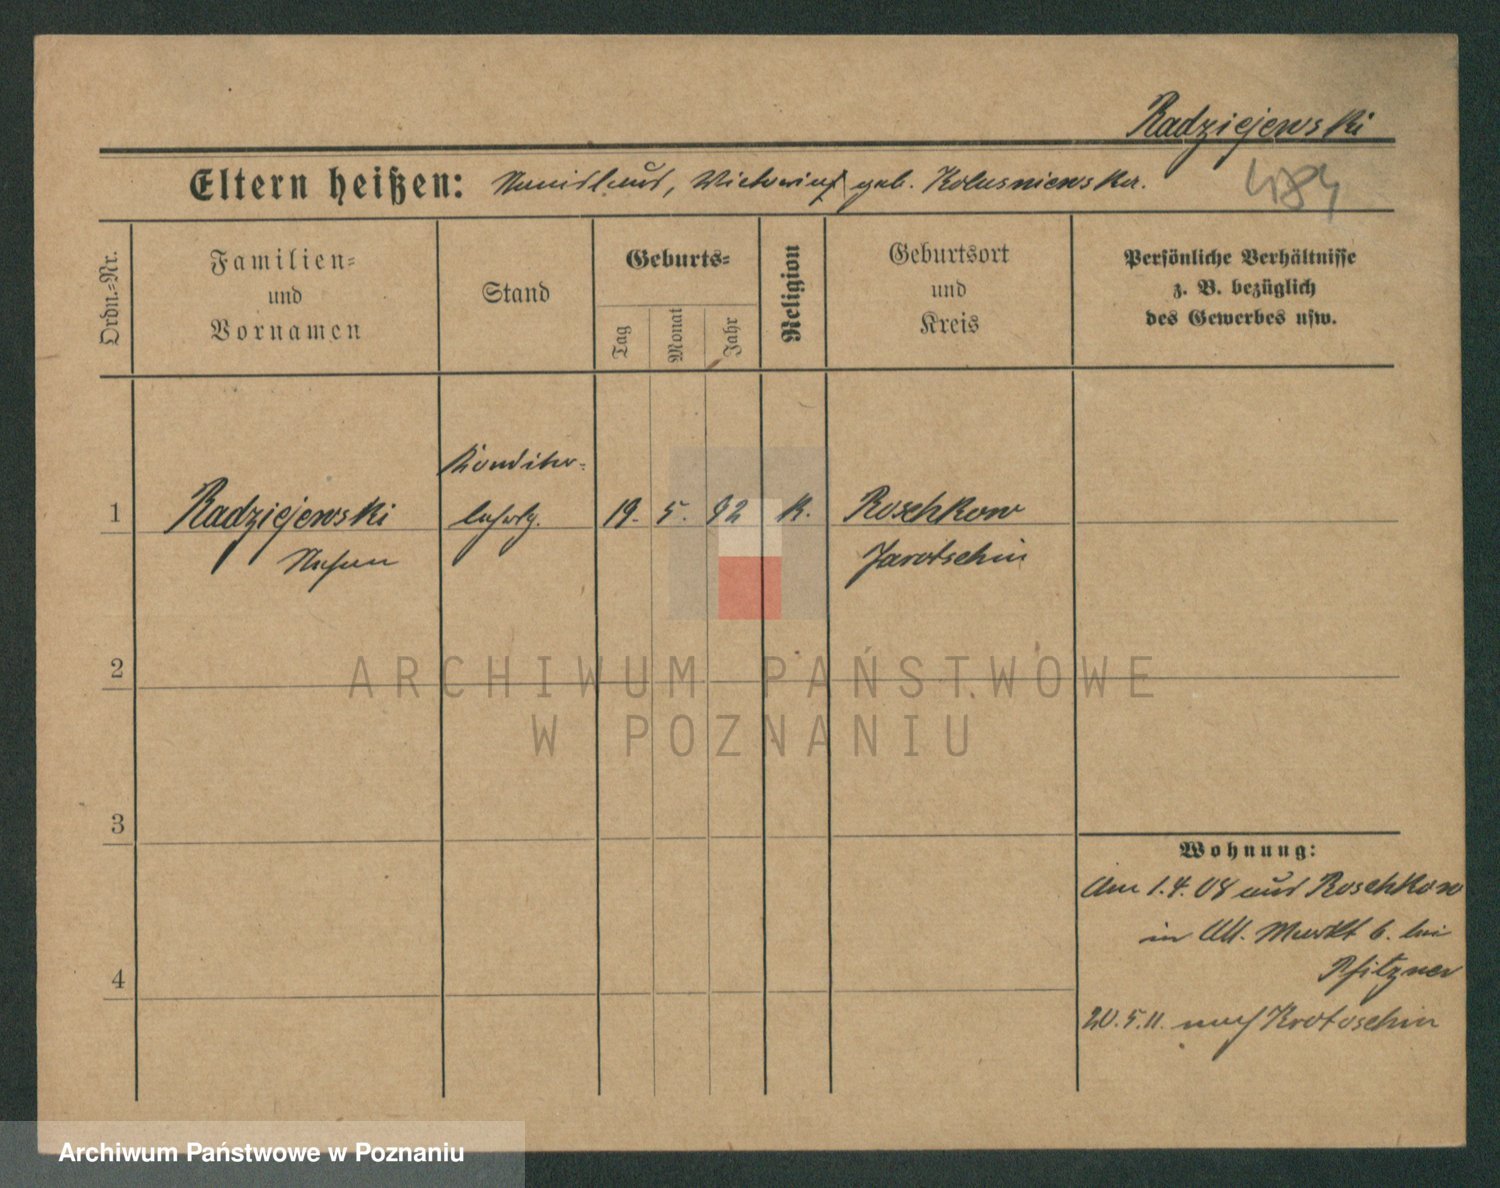 Radziejewski
Eltern heißen: geb.
484
Ordn.-Nr.
Familien-
und
Vornamen
Stand
Geburts-
Tag
Monat
Jahr
Religion
Geburtsort
und
Kreis
Persönliche Verhältnisse
z. B. bezüglich
des Gewerbes usw.
Konditor-
1 Radziejewski lehrlg. 19. 5. 92 K. Roschkow
Jarotschin
2
3
4
ARCHIWUM PAŃSTWOWE
W POZNANIU
Wohnung:
Am 1.4.08 aus Roschkow
in Alt. Markt 6. bei
Pfitzner
20.5.11. nach Krotoschin
Archiwum Państwowe w Poznaniu